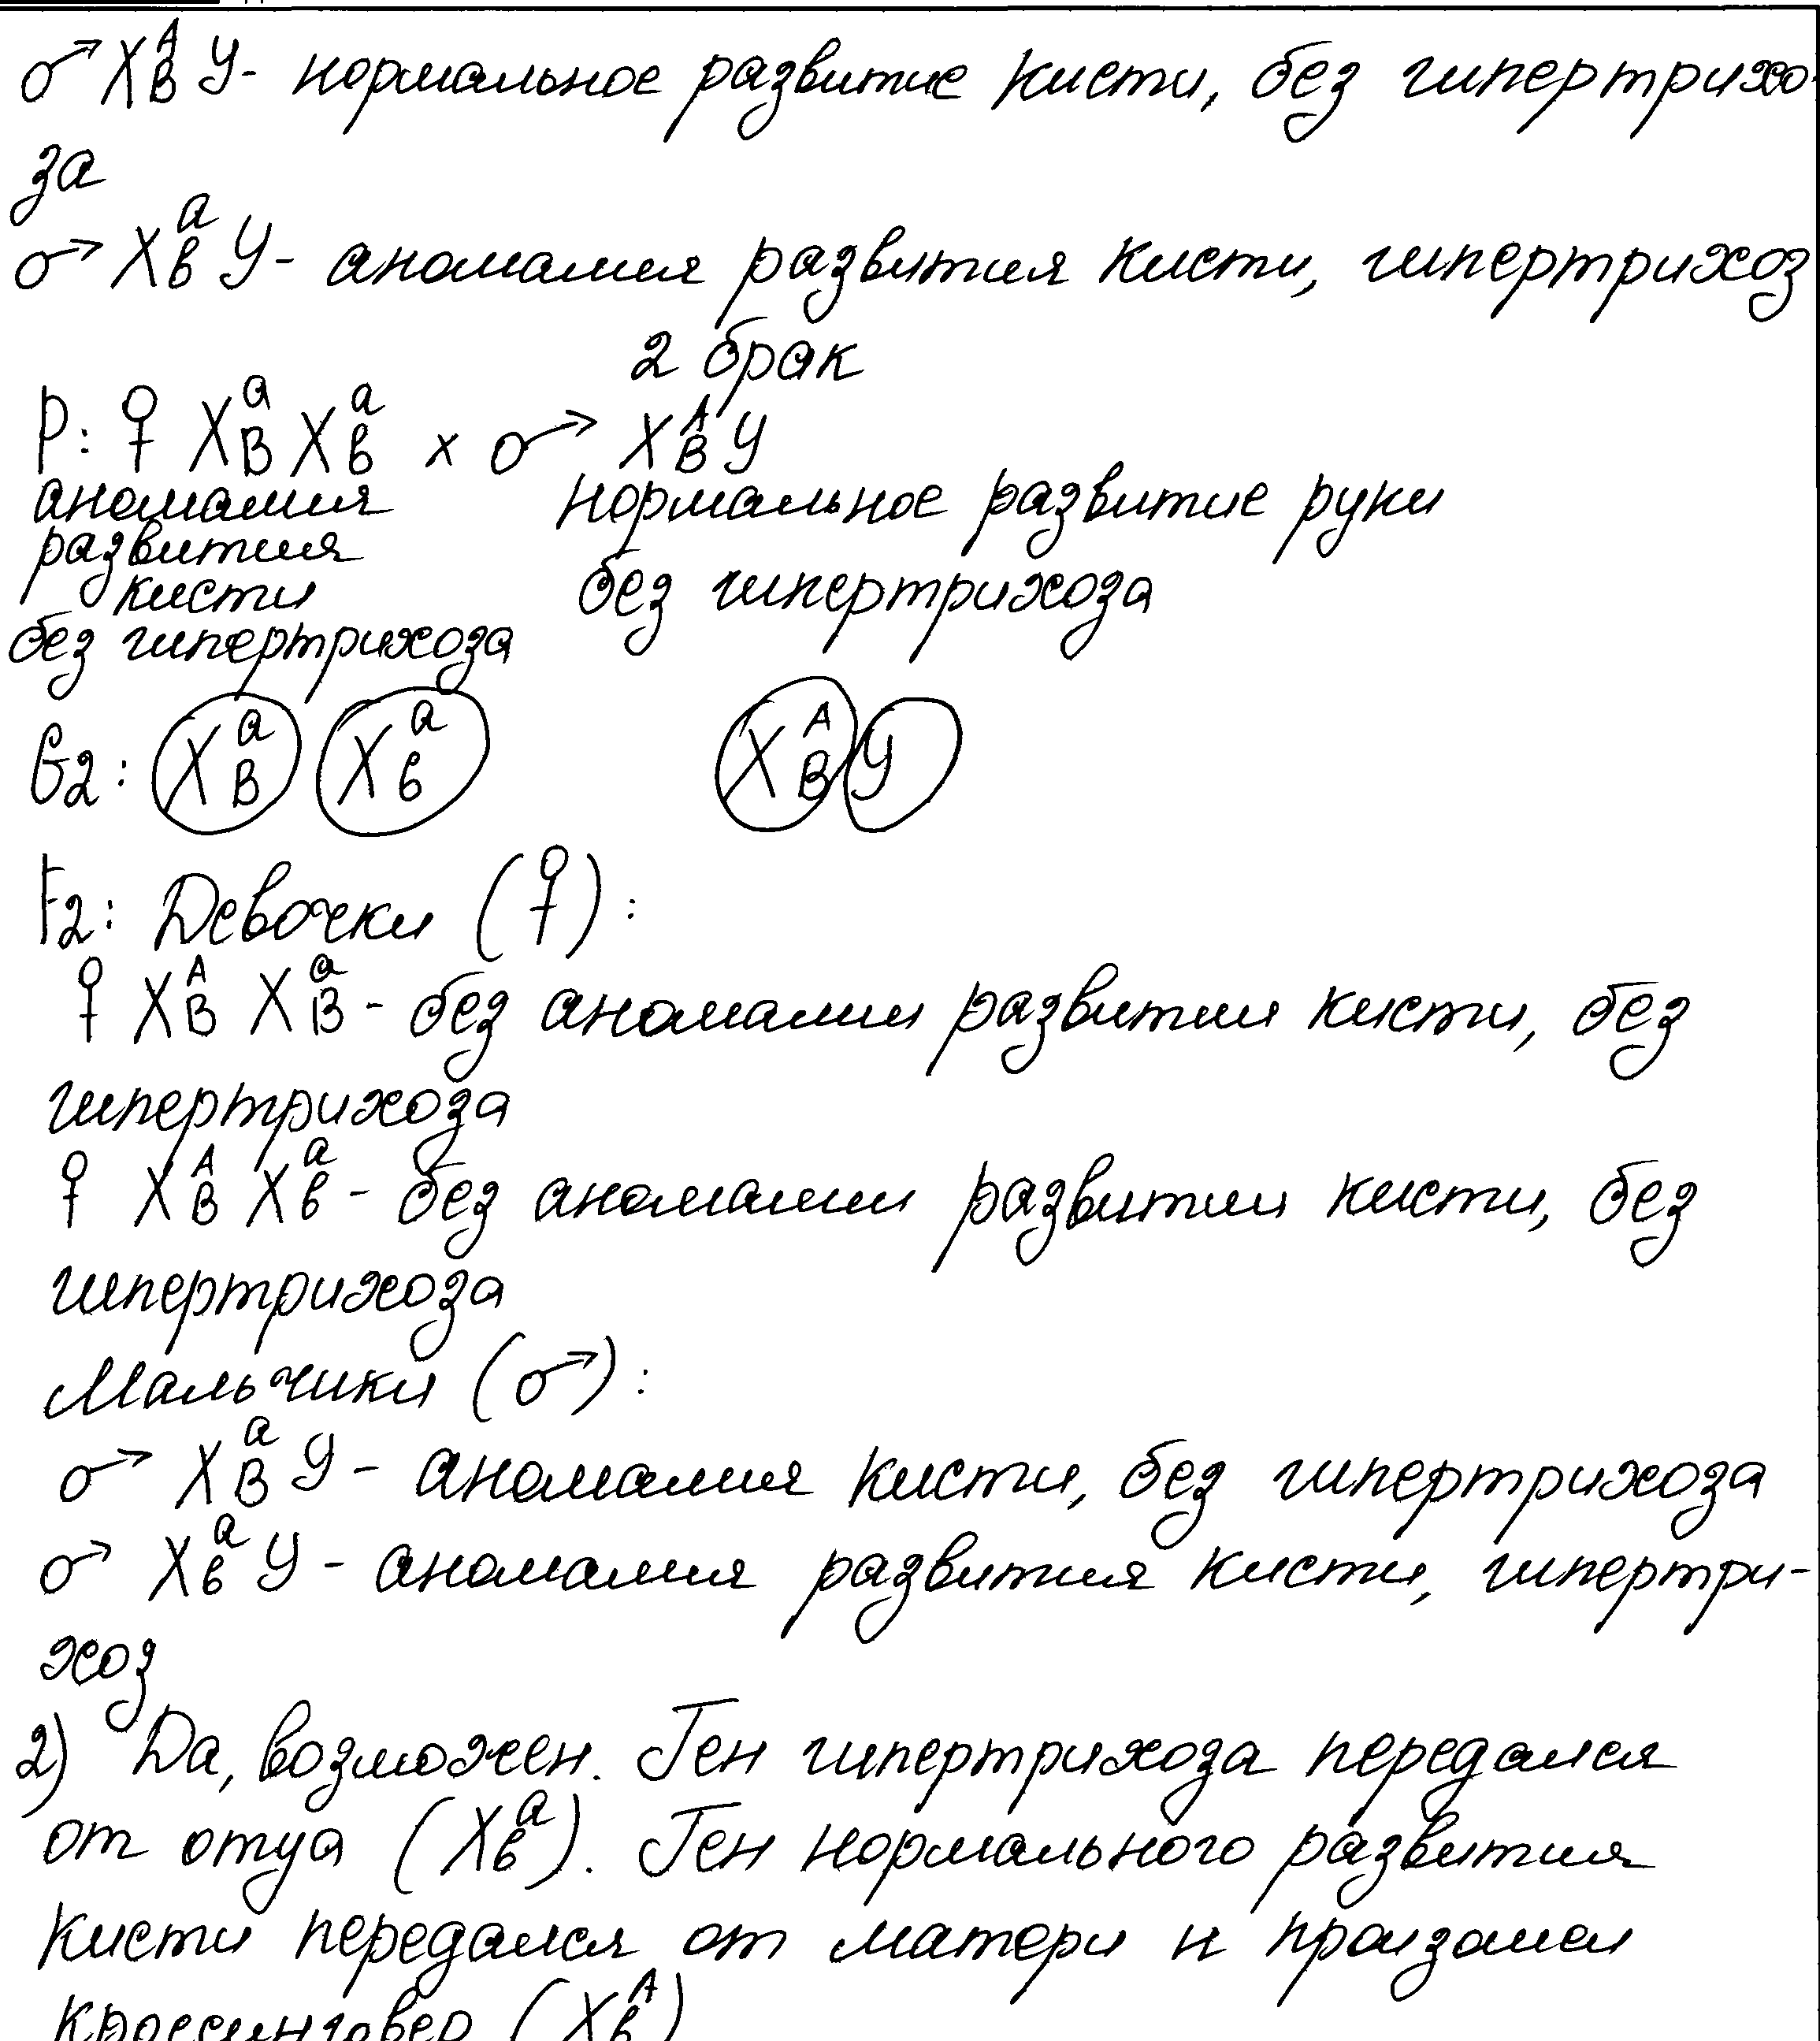 ♂ X^A_B У- нормальное развитие кисти, без гипертрихо-
за
♂ X^a_b У- аномалия развития кисти, гипертрихоз
2 брак
P: ♀ X^a_B X^a_b x ♂ X^A_B У
аномалия нормальное развитие руки
развития
кисти без гипертрихоза
без гипертрихоза
G2: X^a_B X^a_b X^A_B У
F2: Девочки (♀):
♀ X^A_B X^a_B - без аномалии развитии кисти, без
гипертрихоза
♀ X^A_B X^a_b - без аномалии развитии кисти, без
гипертрихоза
Мальчики (♂):
♂ X^a_B У - аномалия кисти, без гипертрихоза
♂ X^a_b У - аномалия развития кисти, гипертри-
хоз
2) Да, возможен. Ген гипертрихоза передался
от отца (X^a_b). Ген нормального развития
кисти передался от матери и произошел
кроссинговер (X^A_b)